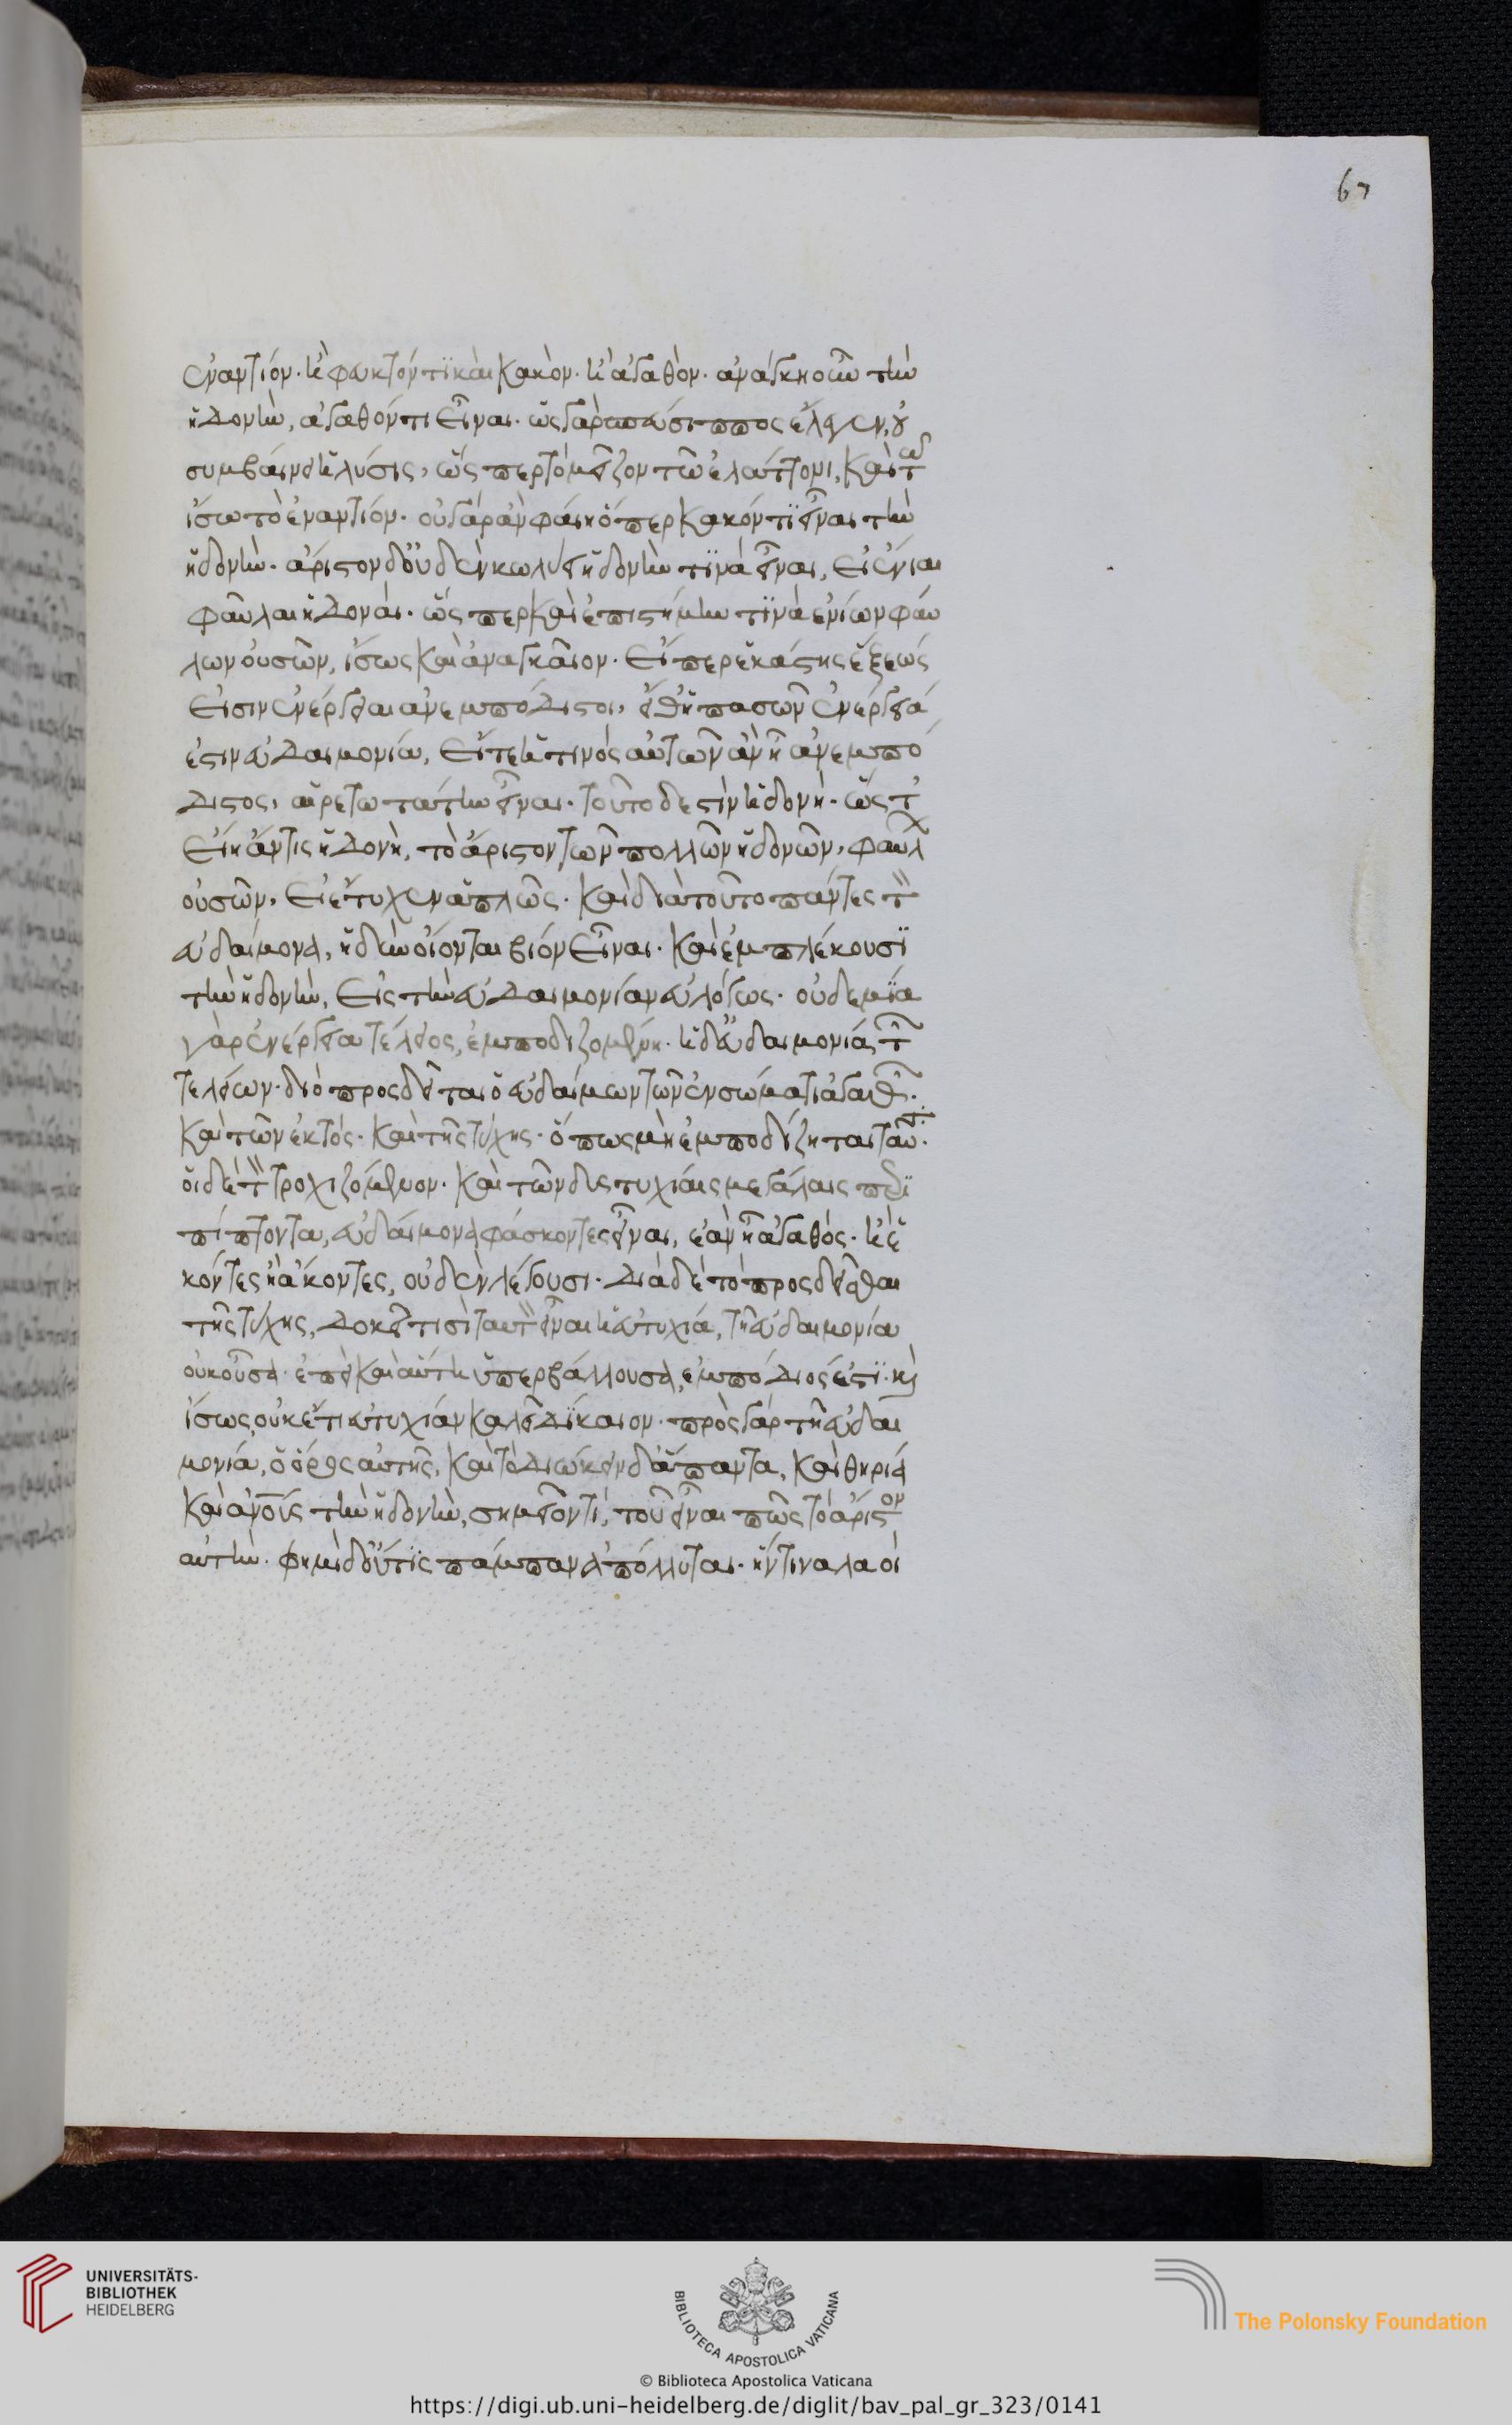 ἐναντίον. ἢ φευκτόν τι καὶ κακὸν. ἢ ἀγαθὸν. ἀνάγκη οὖν τὴν
ἡδονὴν, ἀγαθόν τι εἶναι. ὡς γὰρ πεύσιππος ἔλυεν, οὐ
συμβαίνει ἡ λύσις, ὥσπερ τὸ μεῖζον τῶ ἐλάττονι, καὶ τῶ
ἴσω τὸ ἐναντίον. οὐ γάρ ἂν φαίη ὅπερ κακόν τι εἶναι τὴν
ἡδονὴν. ἄριστον δ' οὐδὲν κωλύει ἡδονὴν τινὰ εἶναι, εἰ ἔνιαι
φαῦλαι ἡδοναί. ὥσπερ καὶ ἐπιστήμην τινὰ ἐνίων φαύ
λων οὐσῶν, ἴσως καὶ ἀναγκαῖον. εἴπερ ἑκάστης ἕξεώς
εἰσιν ἐνέργειαι ἀνεμπόδιστοι, εἴθ' ἡ πασῶν ἐνέργειά
ἐστιν εὐδαιμονία, εἴτε ἡ τινός αὐτῶν ἂν ᾖ ἀνεμπό
διστος, αἱρετωτάτην εἶναι. τοῦτο δ' ἐστὶν ἡ ἡδονὴ. ὥστ'
εἴη ἄν τις ἡδονὴ, τὸ ἄριστον τῶν πολλῶν ἡδονῶν, φαύλων
οὐσῶν, εἰ ἔτυχεν ἁπλῶς. καὶ διὰ τοῦτο πάντες τὸν
εὐδαίμονα, ἡδὺν οἴονται βίον εἶναι. καὶ ἐμπλέκουσι
τὴν ἡδονὴν, εἰς τὴν εὐδαιμονίαν εὐλόγως. οὐδεμία
γὰρ ἐνέργεια τέλειος, ἐμποδιζομένη. ἡ δ' εὐδαιμονία τῶν
τελείων. διὸ προσδεῖται ὁ εὐδαίμων τῶν ἐν σώματι ἀγαθῶν.
καὶ τῶν ἐκτός. καὶ τῆς τύχης. ὅπως μὴ ἐμποδίζηται ταῦτα.
οἱ δὲ τὸν τροχιζόμενον. καὶ τῶν δυστυχίαις μεγάλαις περι
πίπτοντα, εὐδαίμονα φάσκοντες εἶναι, ἐὰν ᾖ ἀγαθός. ἢ ἑ
κόντες ἢ ἄκοντες, οὐδὲν λέγουσι. διὰ δὲ τὸ προσδεῖσθαι
τῆς τύχης, δοκεῖ τισὶ ταὐτὸν εἶναι ἡ εὐτυχία, τῆ εὐδαιμονία
οὐκ οὖσα. ἐπεὶ καὶ αὕτη ὑπερβάλλουσα, ἐμπόδιός ἐστι. καὶ
ἴσως, οὐκέτι εὐτυχίαν καλεῖν δίκαιον. πρὸς γάρ τῆ εὐδαι
μονία, ὁ ὅρος αὐτῆς, καὶ τὸ διώκειν δ' ἅπαντα, καὶ θηρία
καὶ ἀνους τὴν ἡδονὴν, σημεῖόν τί, τοῦ εἶναι πῶς τὸ ἄριστον
αὐτὴν. φήμη δ' οὔτις πάμπαν ἀπόλλυται. ἥντινα λαοί
67
UNIVERSITÄTS-
BIBLIOTHEK
HEIDELBERG
BIBLIOTECA APOSTOLICA VATICANA
The Polonsky Foundation
© Biblioteca Apostolica Vaticana
https://digi.ub.uni-heidelberg.de/diglit/bav_pal_gr_323/0141